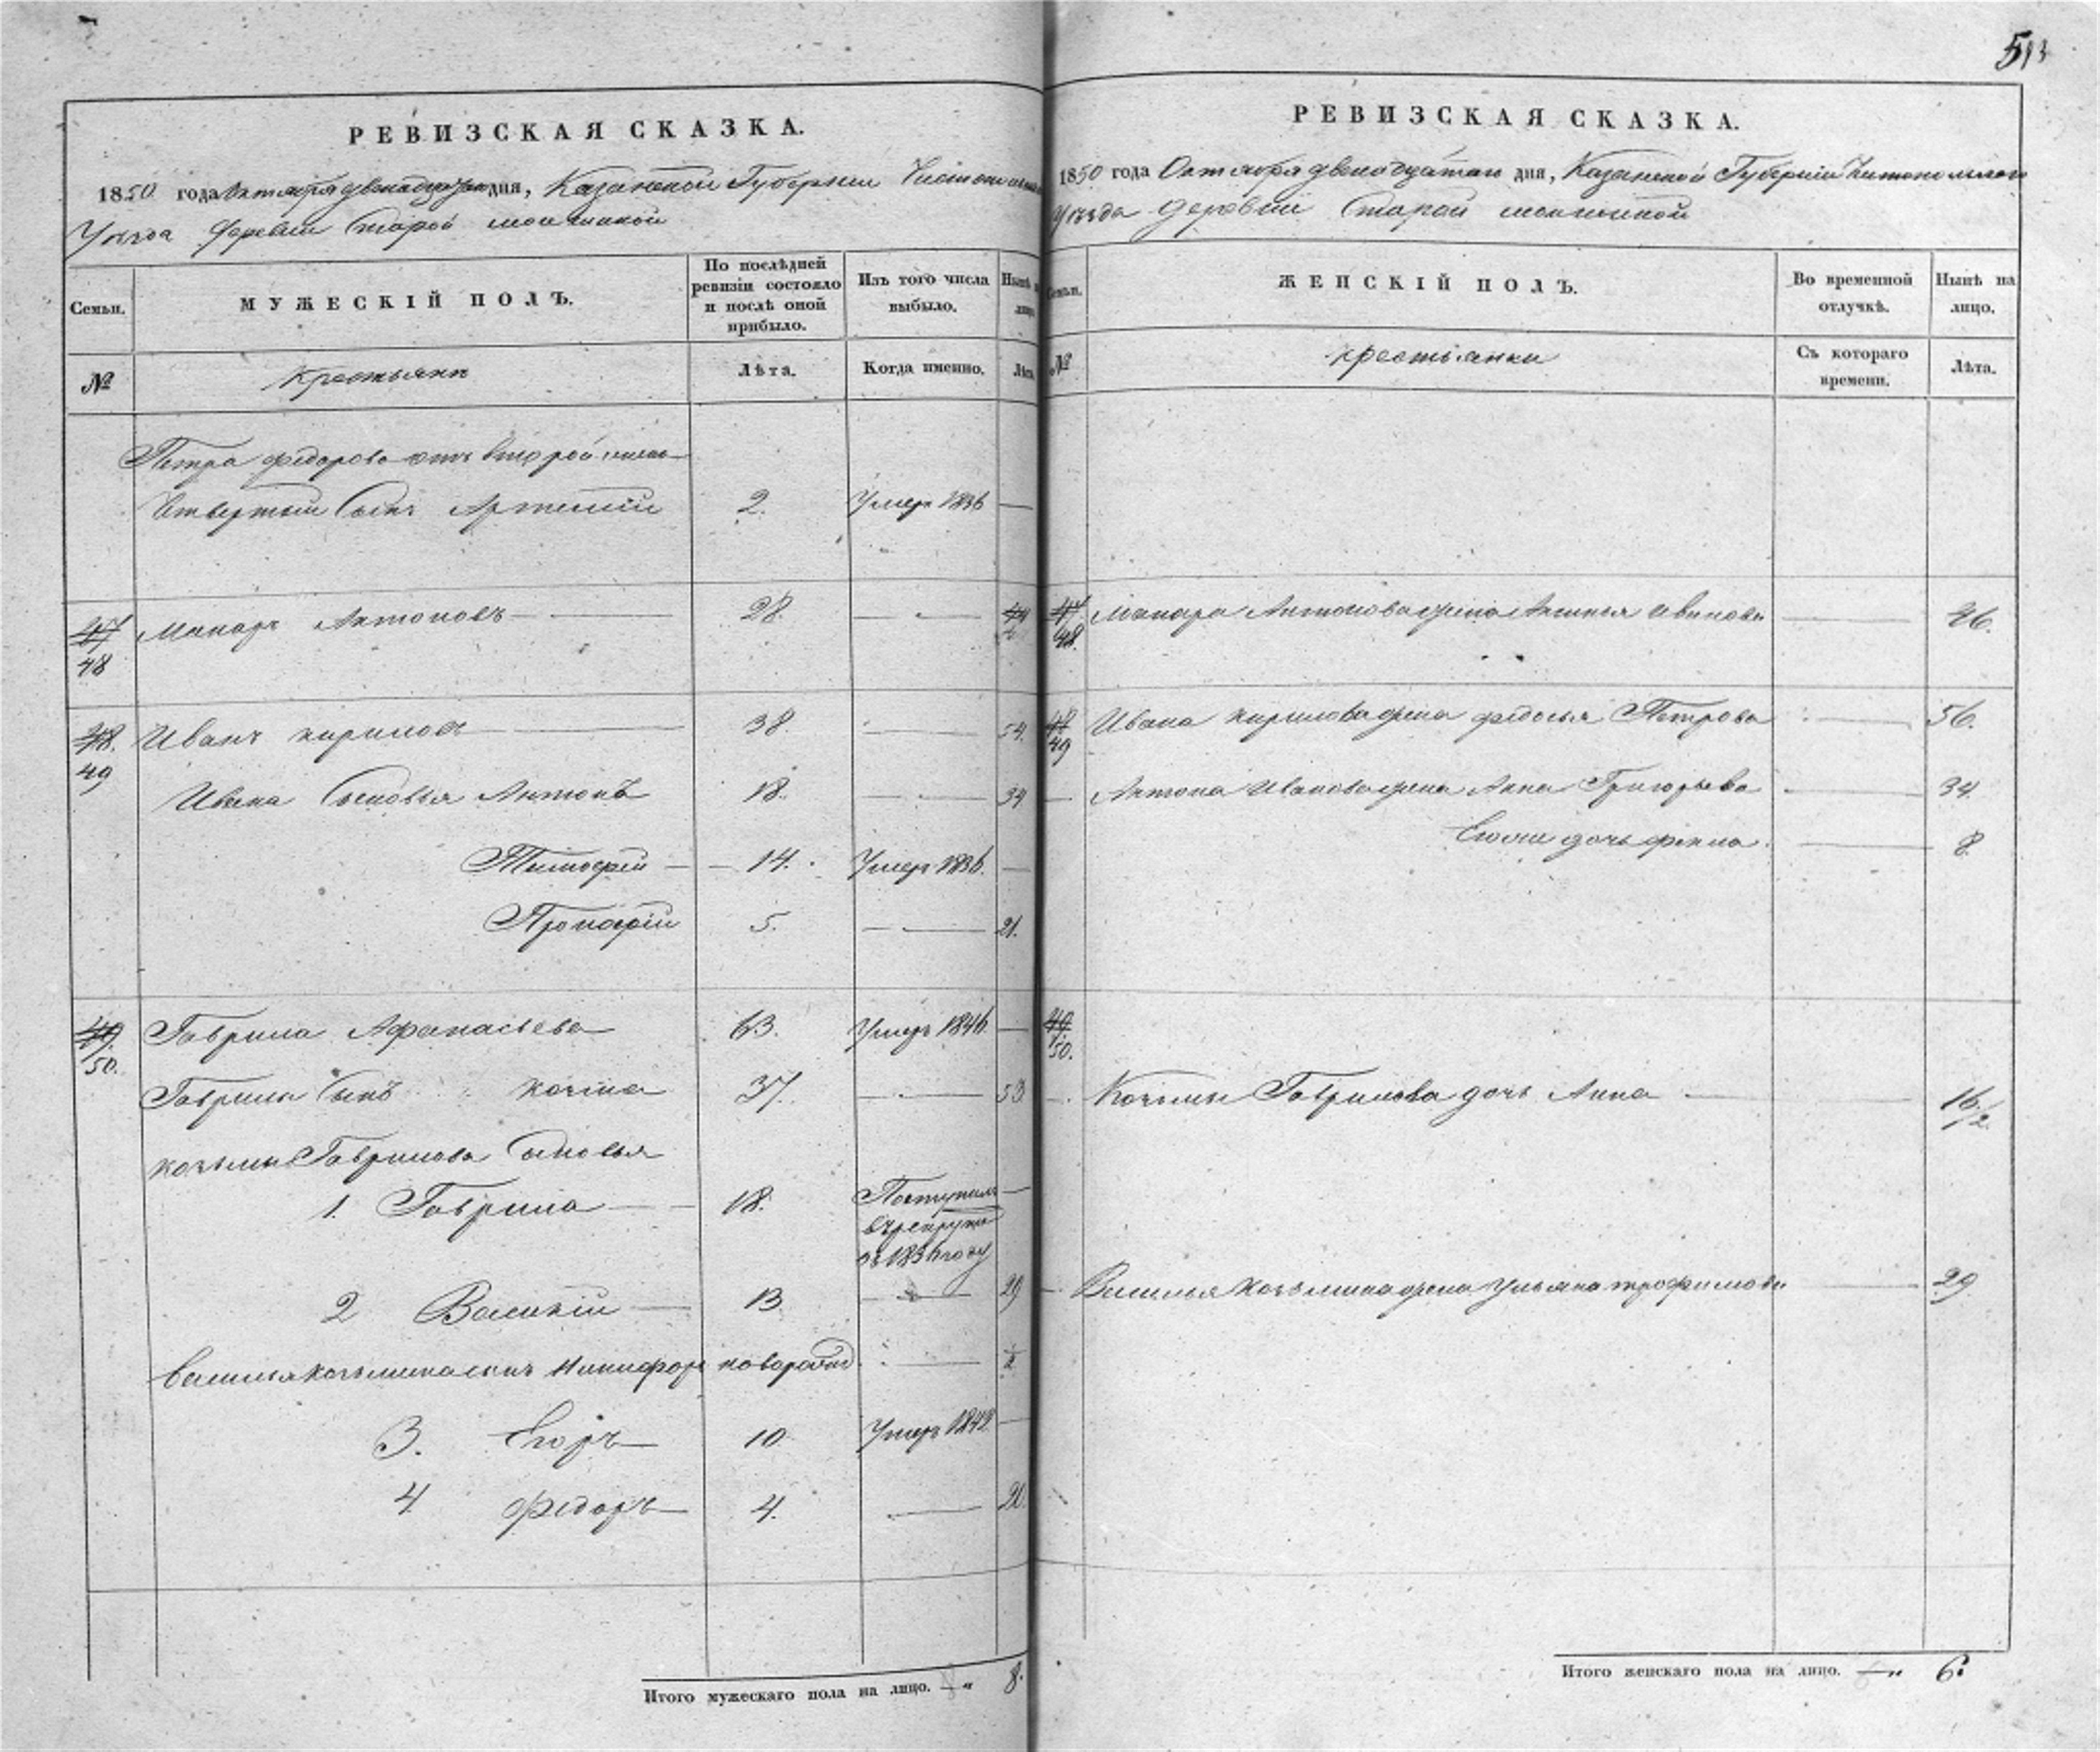 513
РЕВИЗСКАЯ СКАЗКА.
1850 года Октября двенадцатаго дня, Казанской Губернии
Уезда деревни Старой
Семьи.
МУЖЕСКІЙ ПОЛЪ.
По послѣдней ревизіи состояло и послѣ оной прибыло.
Изъ того числа выбыло.
Нынѣ
№
Крестьяне
Лѣта.
Когда именно.
Лѣта
Петра федорова отъ второй
Четвертый Сынъ 2. Умер 1836 —
47 48 Макаръ Антоновъ 28. — 44
48. 49 Иванъ кириловъ 38. — 54.
Ивана Сыновья Антонъ 18. — 34
Тимофей — 14. Умер 1836. —
Прокофий 5. — 21.
49. 50. Гаврила Афанасьева 63. Умеръ 1846. —
Гаврилы Сынъ козма 37. — 53
козьмы Гаврилова Сыновья
1. Гаврила — 18. Поступилъ —
въ рекруты
въ 1836 году
2 Василий — 13 — 29
Василья козьмина сынъ Никифоръ новорожд. —
3. Егоръ 10 Умеръ 184 —
4 федоръ 4. — 20.
Итого мужескаго пола на лицо. — „ 8.
РЕВИЗСКАЯ СКАЗКА.
1850 года Октября двенадцатаго дня, Казанской Губерніи Чистопольскаго
Уезда деревни Старой
Семьи.
ЖЕНСКІЙ ПОЛЪ.
Во временной отлучкѣ.
Нынѣ на лицо.
№
крестьянки
Съ котораго времени.
Лѣта.
47. 48. Макара Антонова жена Иванова — 46.
48 49 Ивана кирилова жена федосья Петрова — 56.
— Антона Иванова жена Анна Григорьева — 34.
Егоже дочь — 8.
49. 50.
— Козьмы Гаврилова дочь Анна — 16 1/2.
— Василья козьмина жена Ульяна трофимова — 29
Итого женскаго пола на лицо. — „ 6.